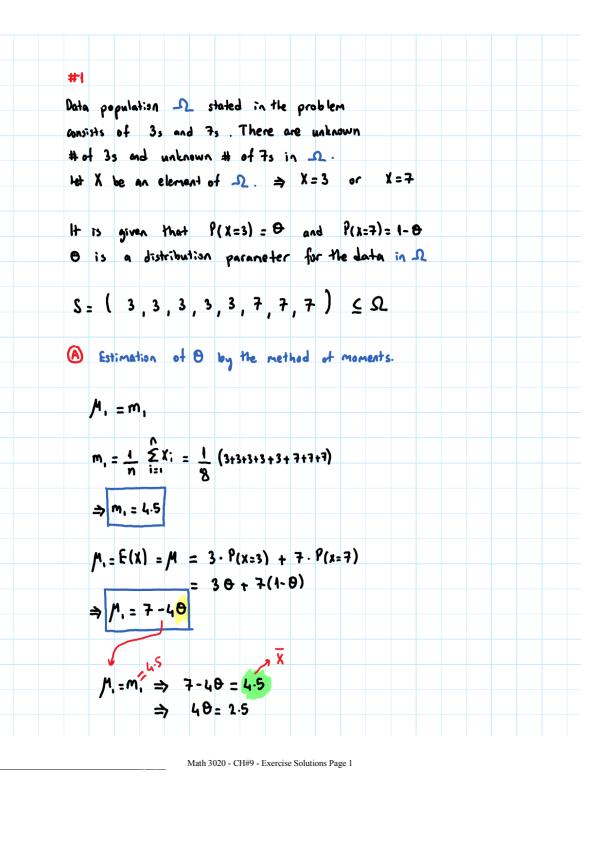 #1
Data population Ω stated in the problem
consists of 3s and 7s. There are unknown
# of 3s and unknown # of 7s in Ω.
Let X be an element of Ω. ⇒ X=3 or X=7
It is given that P(X=3) = θ and P(X=7)= 1-θ
θ is a distribution parameter for the data in Ω
S = ( 3, 3, 3, 3, 3, 7, 7, 7 ) ⊆ Ω
Ⓐ Estimation of θ by the method of moments.
μ₁ = m₁
m₁ = 1/n Σᵢ₌₁ⁿ xᵢ = 1/8 (3+3+3+3+3+7+7+7)
⇒ m₁ = 4.5
μ₁ = E(X) = μ = 3 · P(X=3) + 7 · P(X=7)
= 3θ + 7(1-θ)
⇒ μ₁ = 7-4θ
= 4.5 x̄
μ₁ = m₁ ⇒ 7-4θ = 4.5
⇒ 4θ = 2.5
Math 3020 - CH#9 - Exercise Solutions Page 1